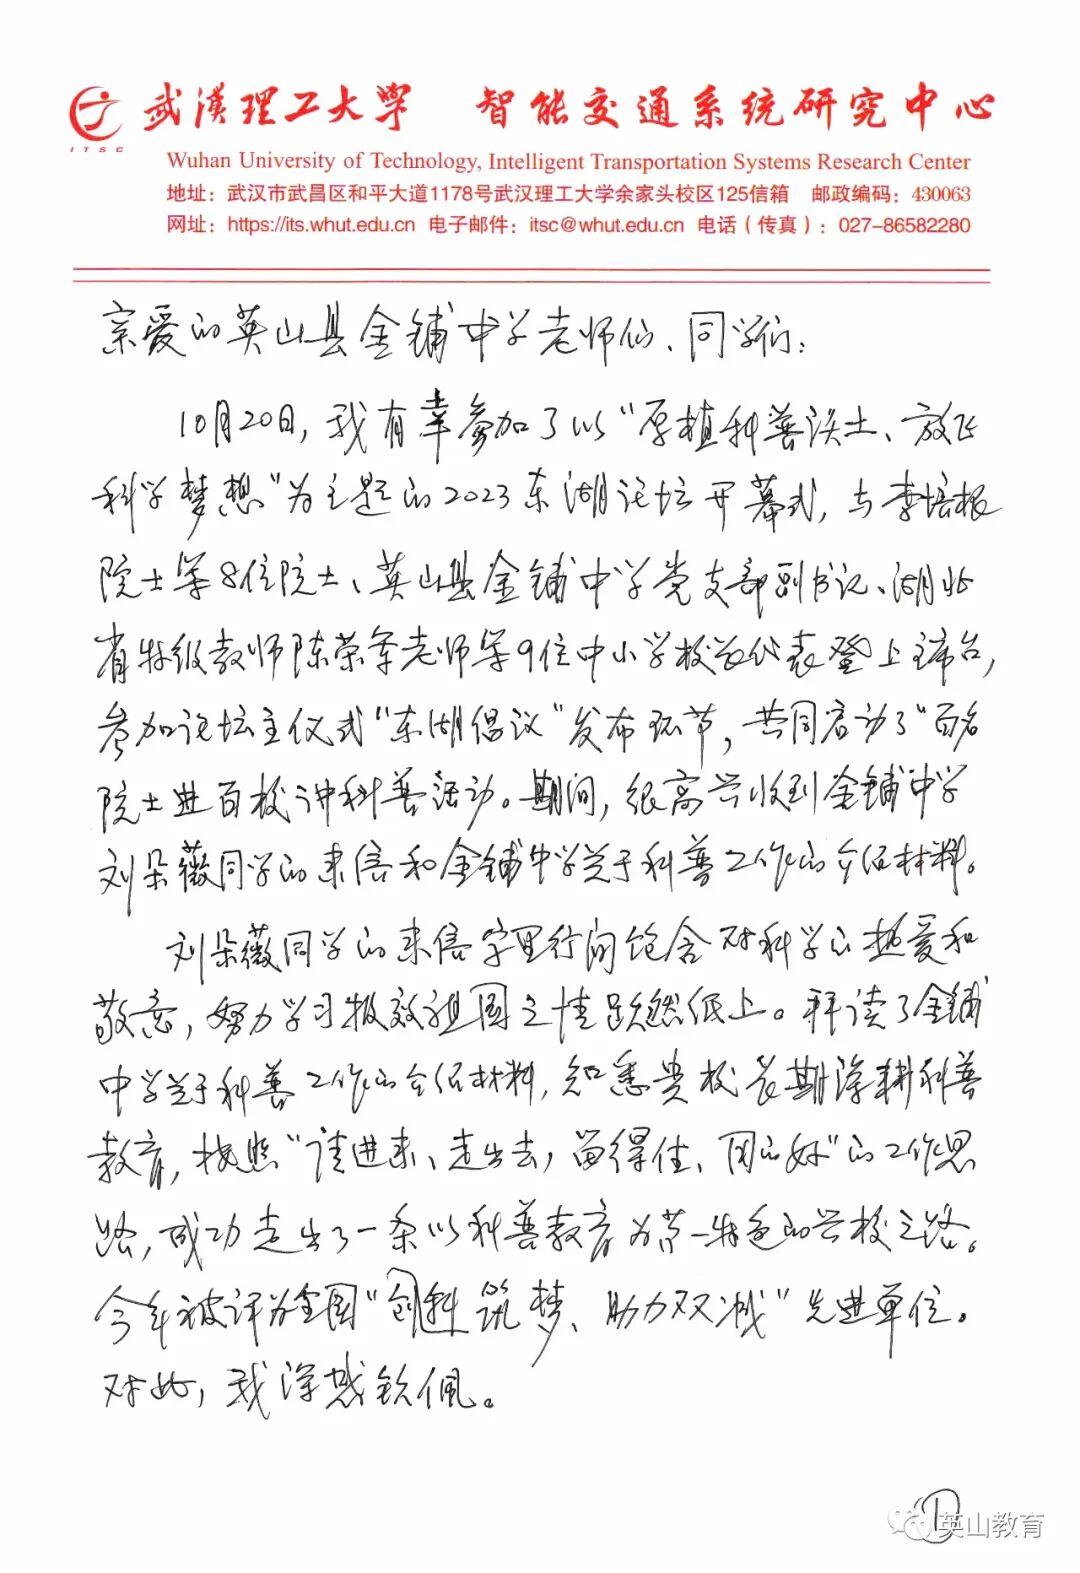 武汉理工大学 智能交通系统研究中心
ITSC
Wuhan University of Technology, Intelligent Transportation Systems Research Center
地址：武汉市武昌区和平大道1178号武汉理工大学余家头校区125信箱 邮政编码：430063
网址：https://its.whut.edu.cn 电子邮件：itsc@whut.edu.cn 电话（传真）：027-86582280
亲爱的英山县金铺中学老师们、同学们：
10月20日，我有幸参加了以“厚植科普沃土、放飞
科学梦想”为主题的2023东湖论坛开幕式，与李培根
院士等8位院士、英山县金铺中学党支部副书记、湖北
省特级教师陈荣军老师等9位中小学校长代表登上主席台，
参加论坛主仪式“东湖倡议”发布环节，共同启动了“百名
院士进百校”讲科普活动。期间，很高兴收到金铺中学
刘朵薇同学的来信和金铺中学关于科普工作的介绍材料。
刘朵薇同学的来信字里行间饱含对科学的热爱和
敬意，努力学习报效祖国之情跃然纸上。拜读了金铺
中学关于科普工作的介绍材料，知悉贵校长期深耕科普
教育，按照“请进来、走出去，留得住、用的好”的工作思
路，成功走出了一条以科普教育为第一特色的兴校之路。
今年被评为全国“创科筑梦、助力双减”先进单位。
对此，我深感钦佩。
①
英山教育